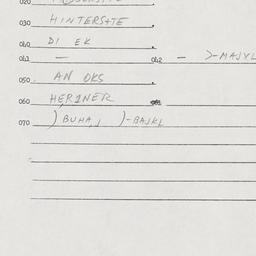 030 HINTERSTE
040 DI EK
041 — 042 —
050 AN OKS
060 HERINER
070 )BUHAJ )-BAJKL